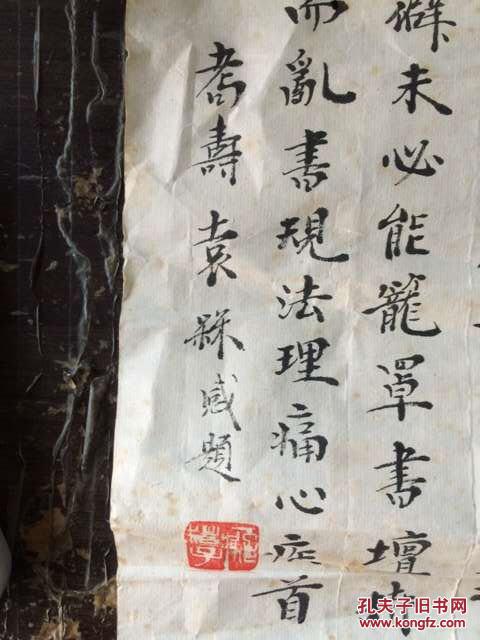 未必能籠罩書壇
而亂書規法理痛心疾首
耆壽袁感題
孔夫子旧书网
www.kongfz.com